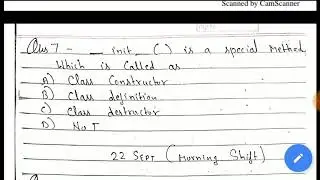 Scanned by CamScanner
Ques 7 - __ init __ ( ) is a special Method
Which is Called as
A) Class Constructor
B) Class definition
C) Class destructor
D) NOT
22 SEPT (Morning Shift)